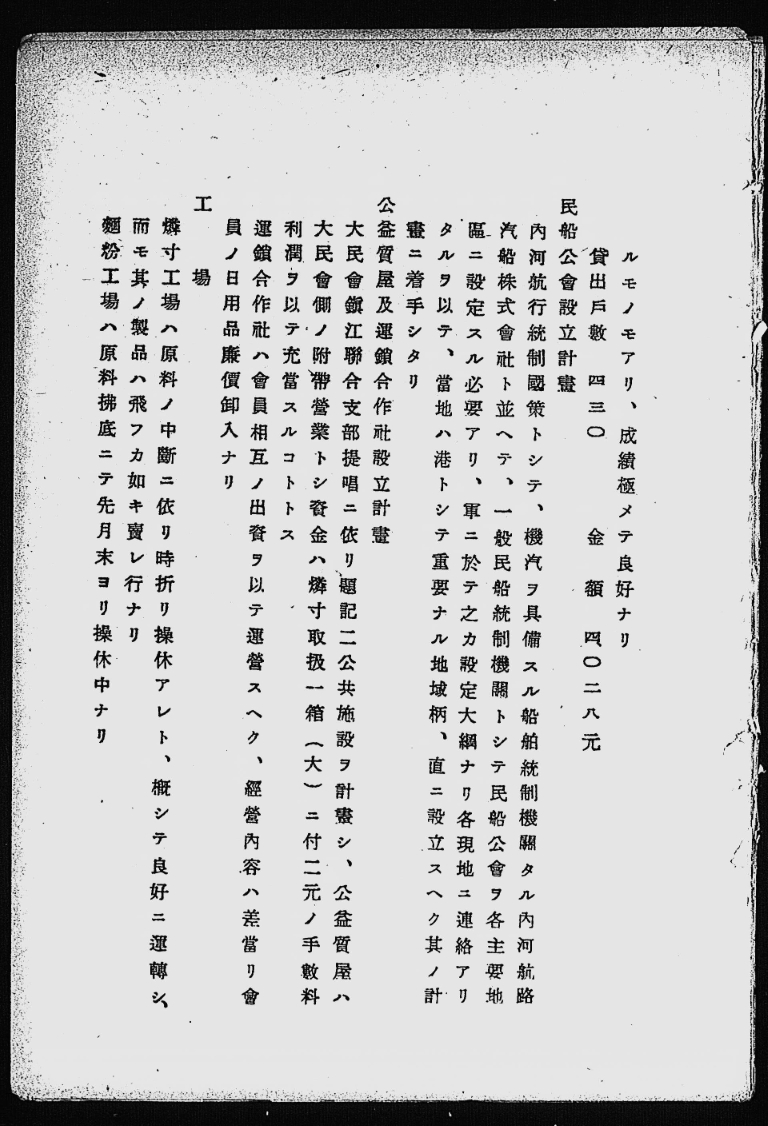 ルモノモアリ、成績極メテ良好ナリ
貸出戶數　四三〇　　金　額　四〇二八元
民船公會設立計畫
內河航行統制國策トシテ、機汽ヲ具備スル船舶統制機關タル內河航路
汽船株式會社ト並ヘテ、一般民船統制機關トシテ民船公會ヲ各主要地
區ニ設定スル必要アリ、軍ニ於テ之カ設定大綱ナリ各現地ニ連絡アリ
タルヲ以テ、當地ハ港トシテ重要ナル地域柄、直ニ設立スヘク其ノ計
畫ニ着手シタリ
公益質屋及運鎖合作社設立計畫
大民會鎭江聯合支部提唱ニ依リ題記二公共施設ヲ計畫シ、公益質屋ハ
大民會側ノ附帶營業トシ資金ハ燐寸取扱一箱（大）ニ付二元ノ手數料
利潤ヲ以テ充當スルコトトス
運鎖合作社ハ會員相互ノ出資ヲ以テ運營スヘク、經營內容ハ差當リ會
員ノ日用品廉價卸入ナリ
工　　場
燐寸工場ハ原料ノ中斷ニ依リ時折リ操休アレト、槪シテ良好ニ運轉シ、
而モ其ノ製品ハ飛フカ如キ賣レ行ナリ
麵粉工場ハ原料拂底ニテ先月末ヨリ操休中ナリ